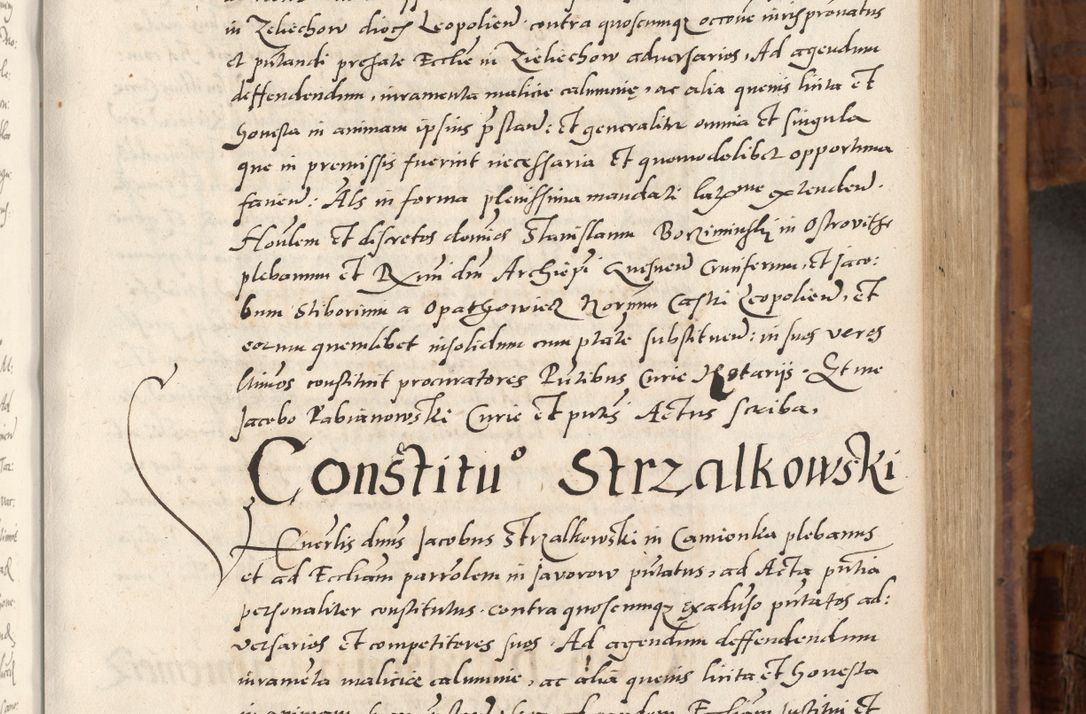 in Zeliechow dioc Leopolien contra quoscunq occone iurispronatus
et putandi prefate Ecclie in Zieliechow adversarios, Ad agendum
deffendendum, iuramenta malicie calumnię, ac alia quevis licita Et
honesta in animam ipsius pstan: Et generaliter omnia Et singula
que in premissis fuerint necessaria Et quomodolibet opportuna
facien: Als in forma plenissima mandati latme extenden.
Houlem Et discretos domios Stanislaum Borziminski in Ostrovithe
plebanum et Rmi dni Archiepi Cruciferum, Et Jaco:
bum Stiborium a Opathowiecz Norium Castri Leopolien, Et
eorum quemlibet insolidum cum ptate substituen: in suos veros
ltimos constituit procuratores Pntibus Curie Notarijs. Et me
Jacobo Rabianowski Curie et pnts Actus scriba,
Constitu° Strzalkowski
Hnerlis dnus Jacobus Strzalkowski in Camionka plebanus
et ad Eccliam parrolem in Javorow pntatus, ad Acta pntia
personaliter constitutus. contra quoscunq Ex aduso pntatos ad:
versarios Et competitores suos. Ad agendum deffendendum
iuramenta malicie calumnie, ac alia quevis licita Et honesta